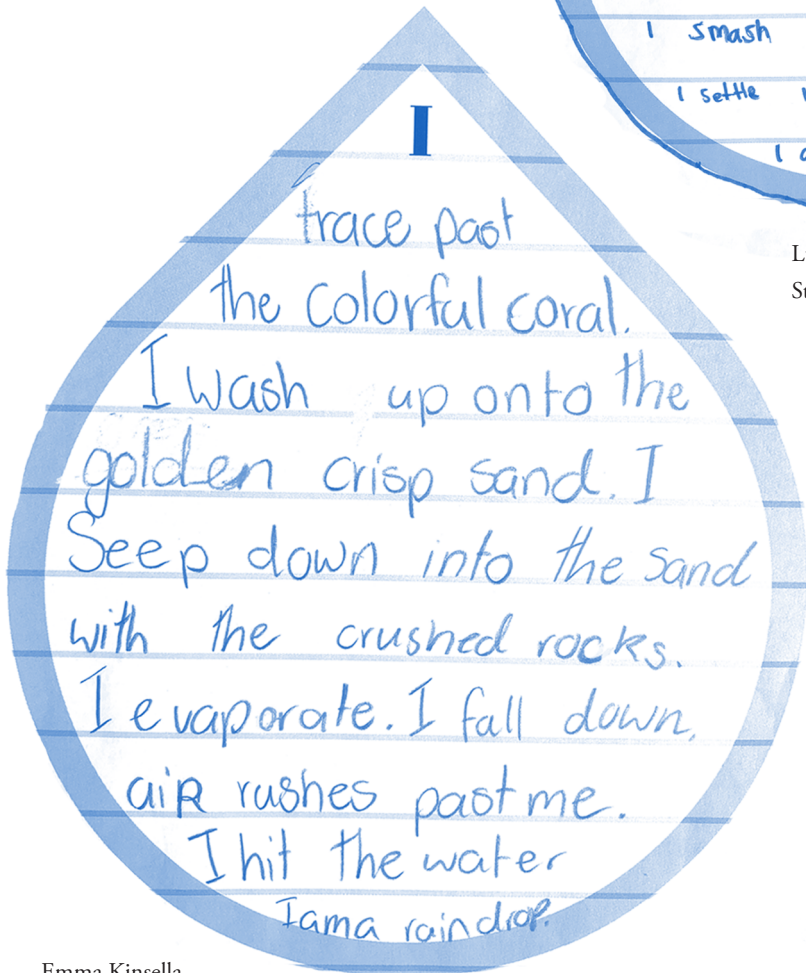 I smash
I settle
I
I
trace past
the colorful coral.
I wash up onto the
golden crisp sand. I
Seep down into the sand
with the crushed rocks.
I evaporate. I fall down,
aiR rushes past me.
I hit the water
I am a raindrop.
Emma Kinsella